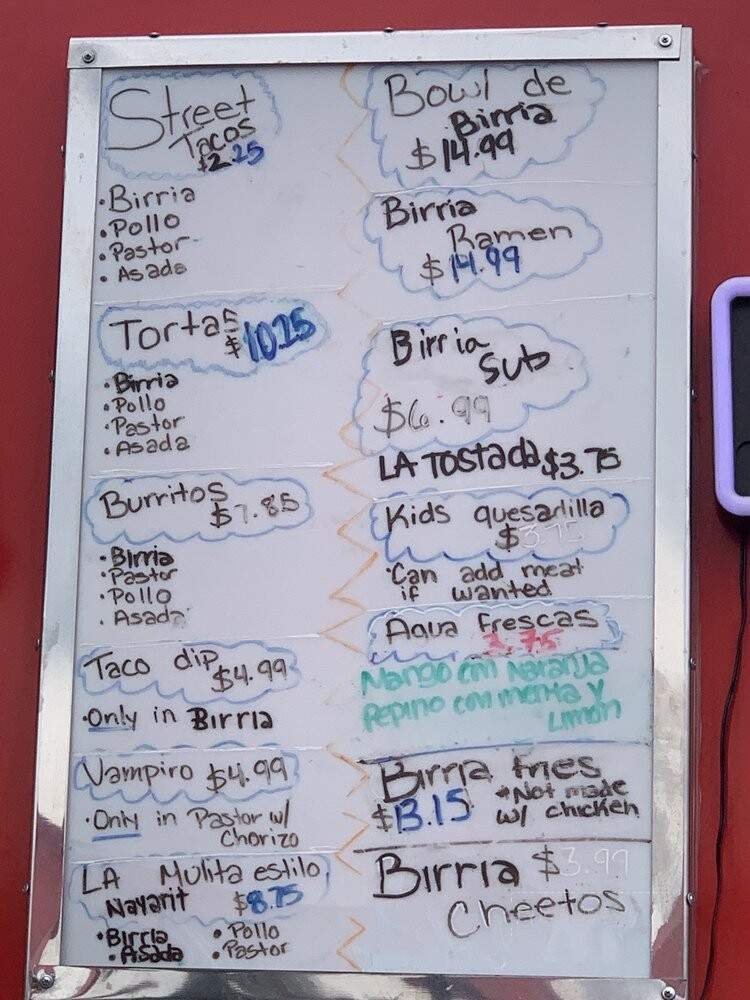 Street
Tacos
$2.25
• Birria
• Pollo
• Pastor
• Asada
Tortas
$10.25
• Birria
• Pollo
• Pastor
• Asada
Burritos
$7.85
• Birria
• Pastor
• Pollo
• Asada
Taco dip
$4.99
• Only in Birria
Vampiro $4.99
• Only in Pastor w/
Chorizo
LA Mulita estilo
Nayarit $8.75
• Birria • Pollo
• Asada • Pastor
Bowl de
Birria
$14.99
Birria
Ramen
$14.99
Birria
Sub
$6.99
LA Tostada $3.75
Kids quesadilla
$3.75
*Can add meat
if wanted
Aqua Frescas
3.75
Mango con Naranja
Pepino con menta y
Limon
Birria fries
$13.15 *Not made
w/ chicken
Birria $3.99
Cheetos